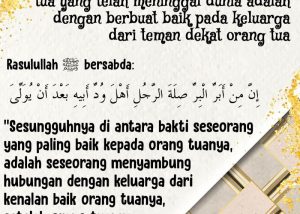 tua yang telah meninggal dunia adalah
dengan berbuat baik pada keluarga
dari teman dekat orang tua
Rasulullah ﷺ bersabda:
إِنَّ مِنْ أَبَرِّ الْبِرِّ صِلَةَ الرَّجُلِ أَهْلَ وُدِّ أَبِيهِ بَعْدَ أَنْ يُوَلِّىَ
"Sesungguhnya di antara bakti seseorang
yang paling baik kepada orang tuanya,
adalah seseorang menyambung
hubungan dengan keluarga dari
kenalan baik orang tuanya,